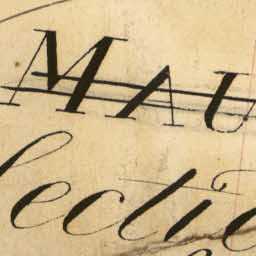 MAU
lectio